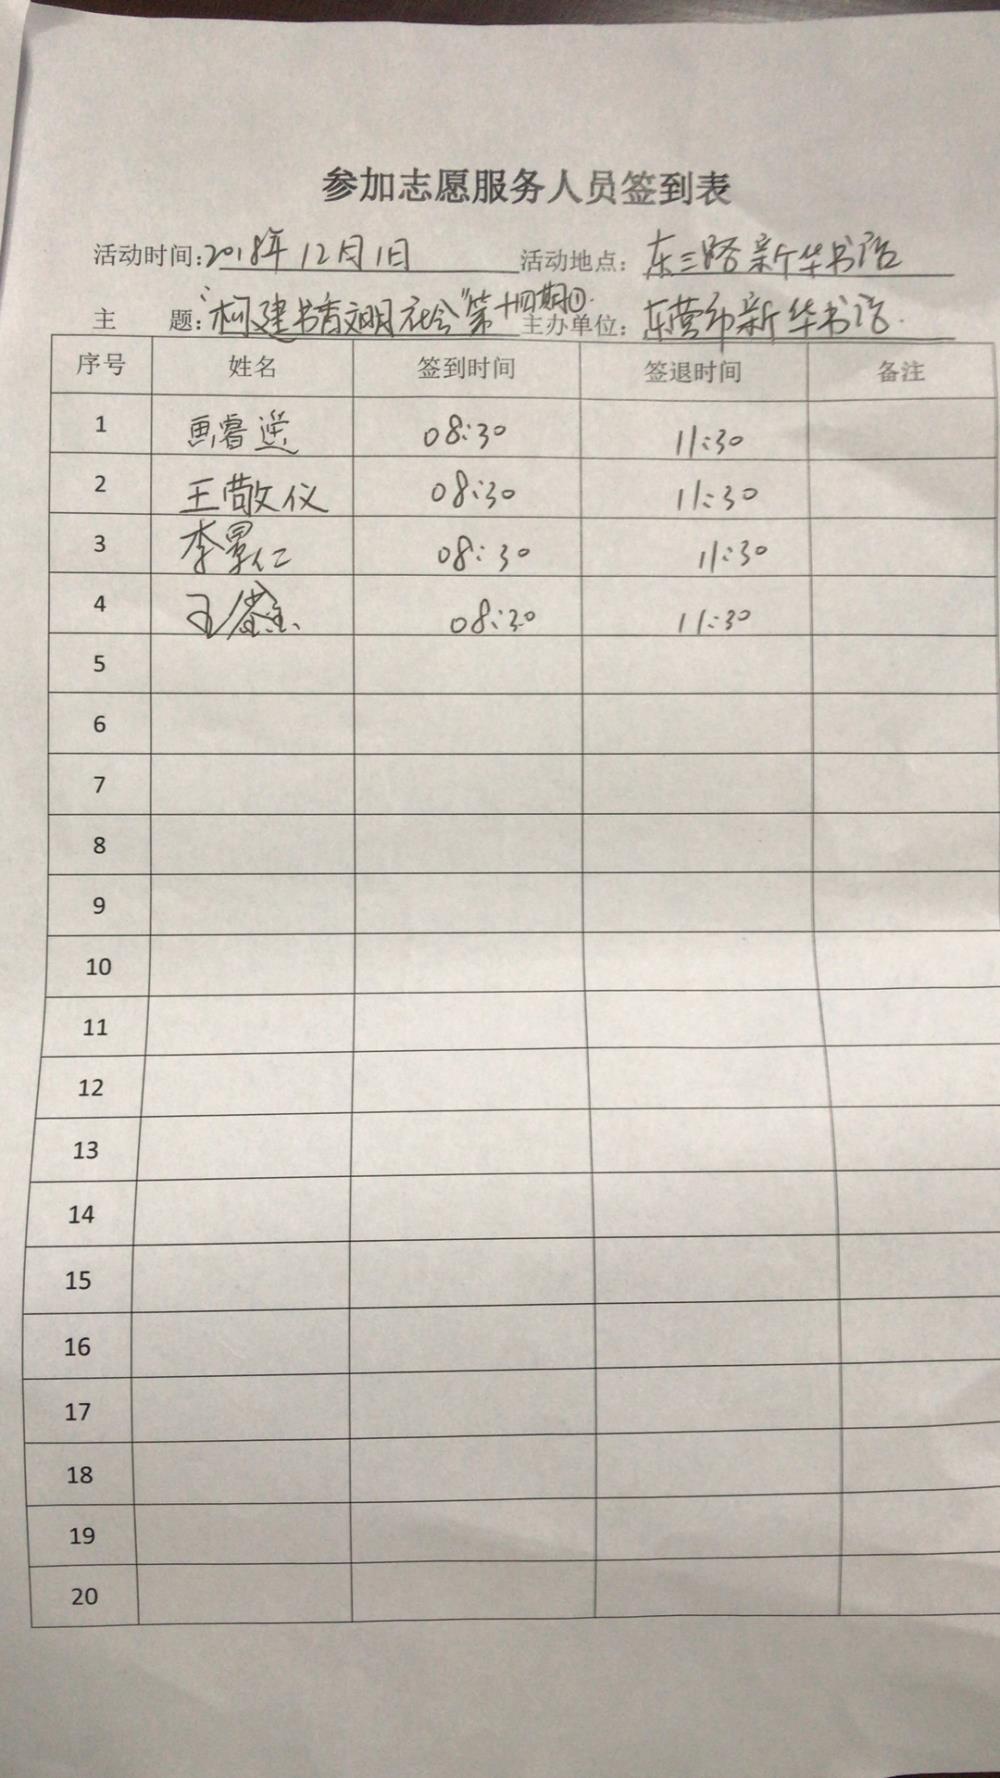 参加志愿服务人员签到表
活动时间:2018年12月1日 活动地点:东三路新华书店
主 题:"构建书香文明社会"第十四期① 主办单位:东营市新华书店
序号 姓名 签到时间 签退时间 备注
1 08:30 11:30
2 王敬仪 08:30 11:30
3 李景仁 08:30 11:30
4 08:30 11:30
5
6
7
8
9
10
11
12
13
14
15
16
17
18
19
20